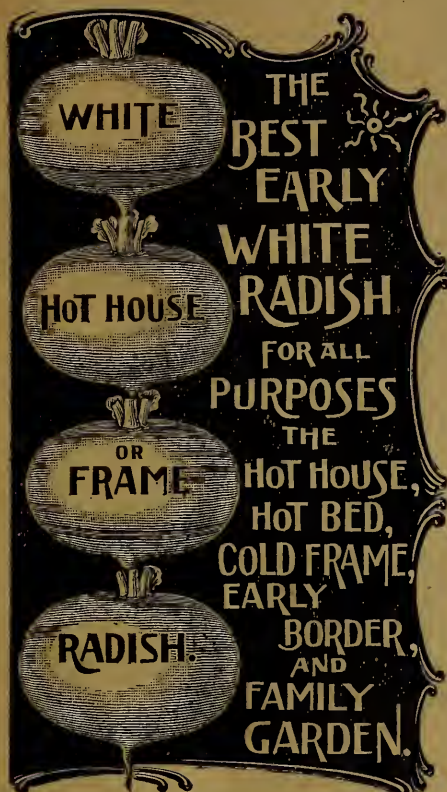 WHITE
HOT HOUSE
OR
FRAME
RADISH.
THE
BEST
EARLY
WHITE
RADISH
FOR ALL
PURPOSES
THE
HOT HOUSE,
HOT BED,
COLD FRAME,
EARLY
BORDER,
AND
FAMILY
GARDEN.